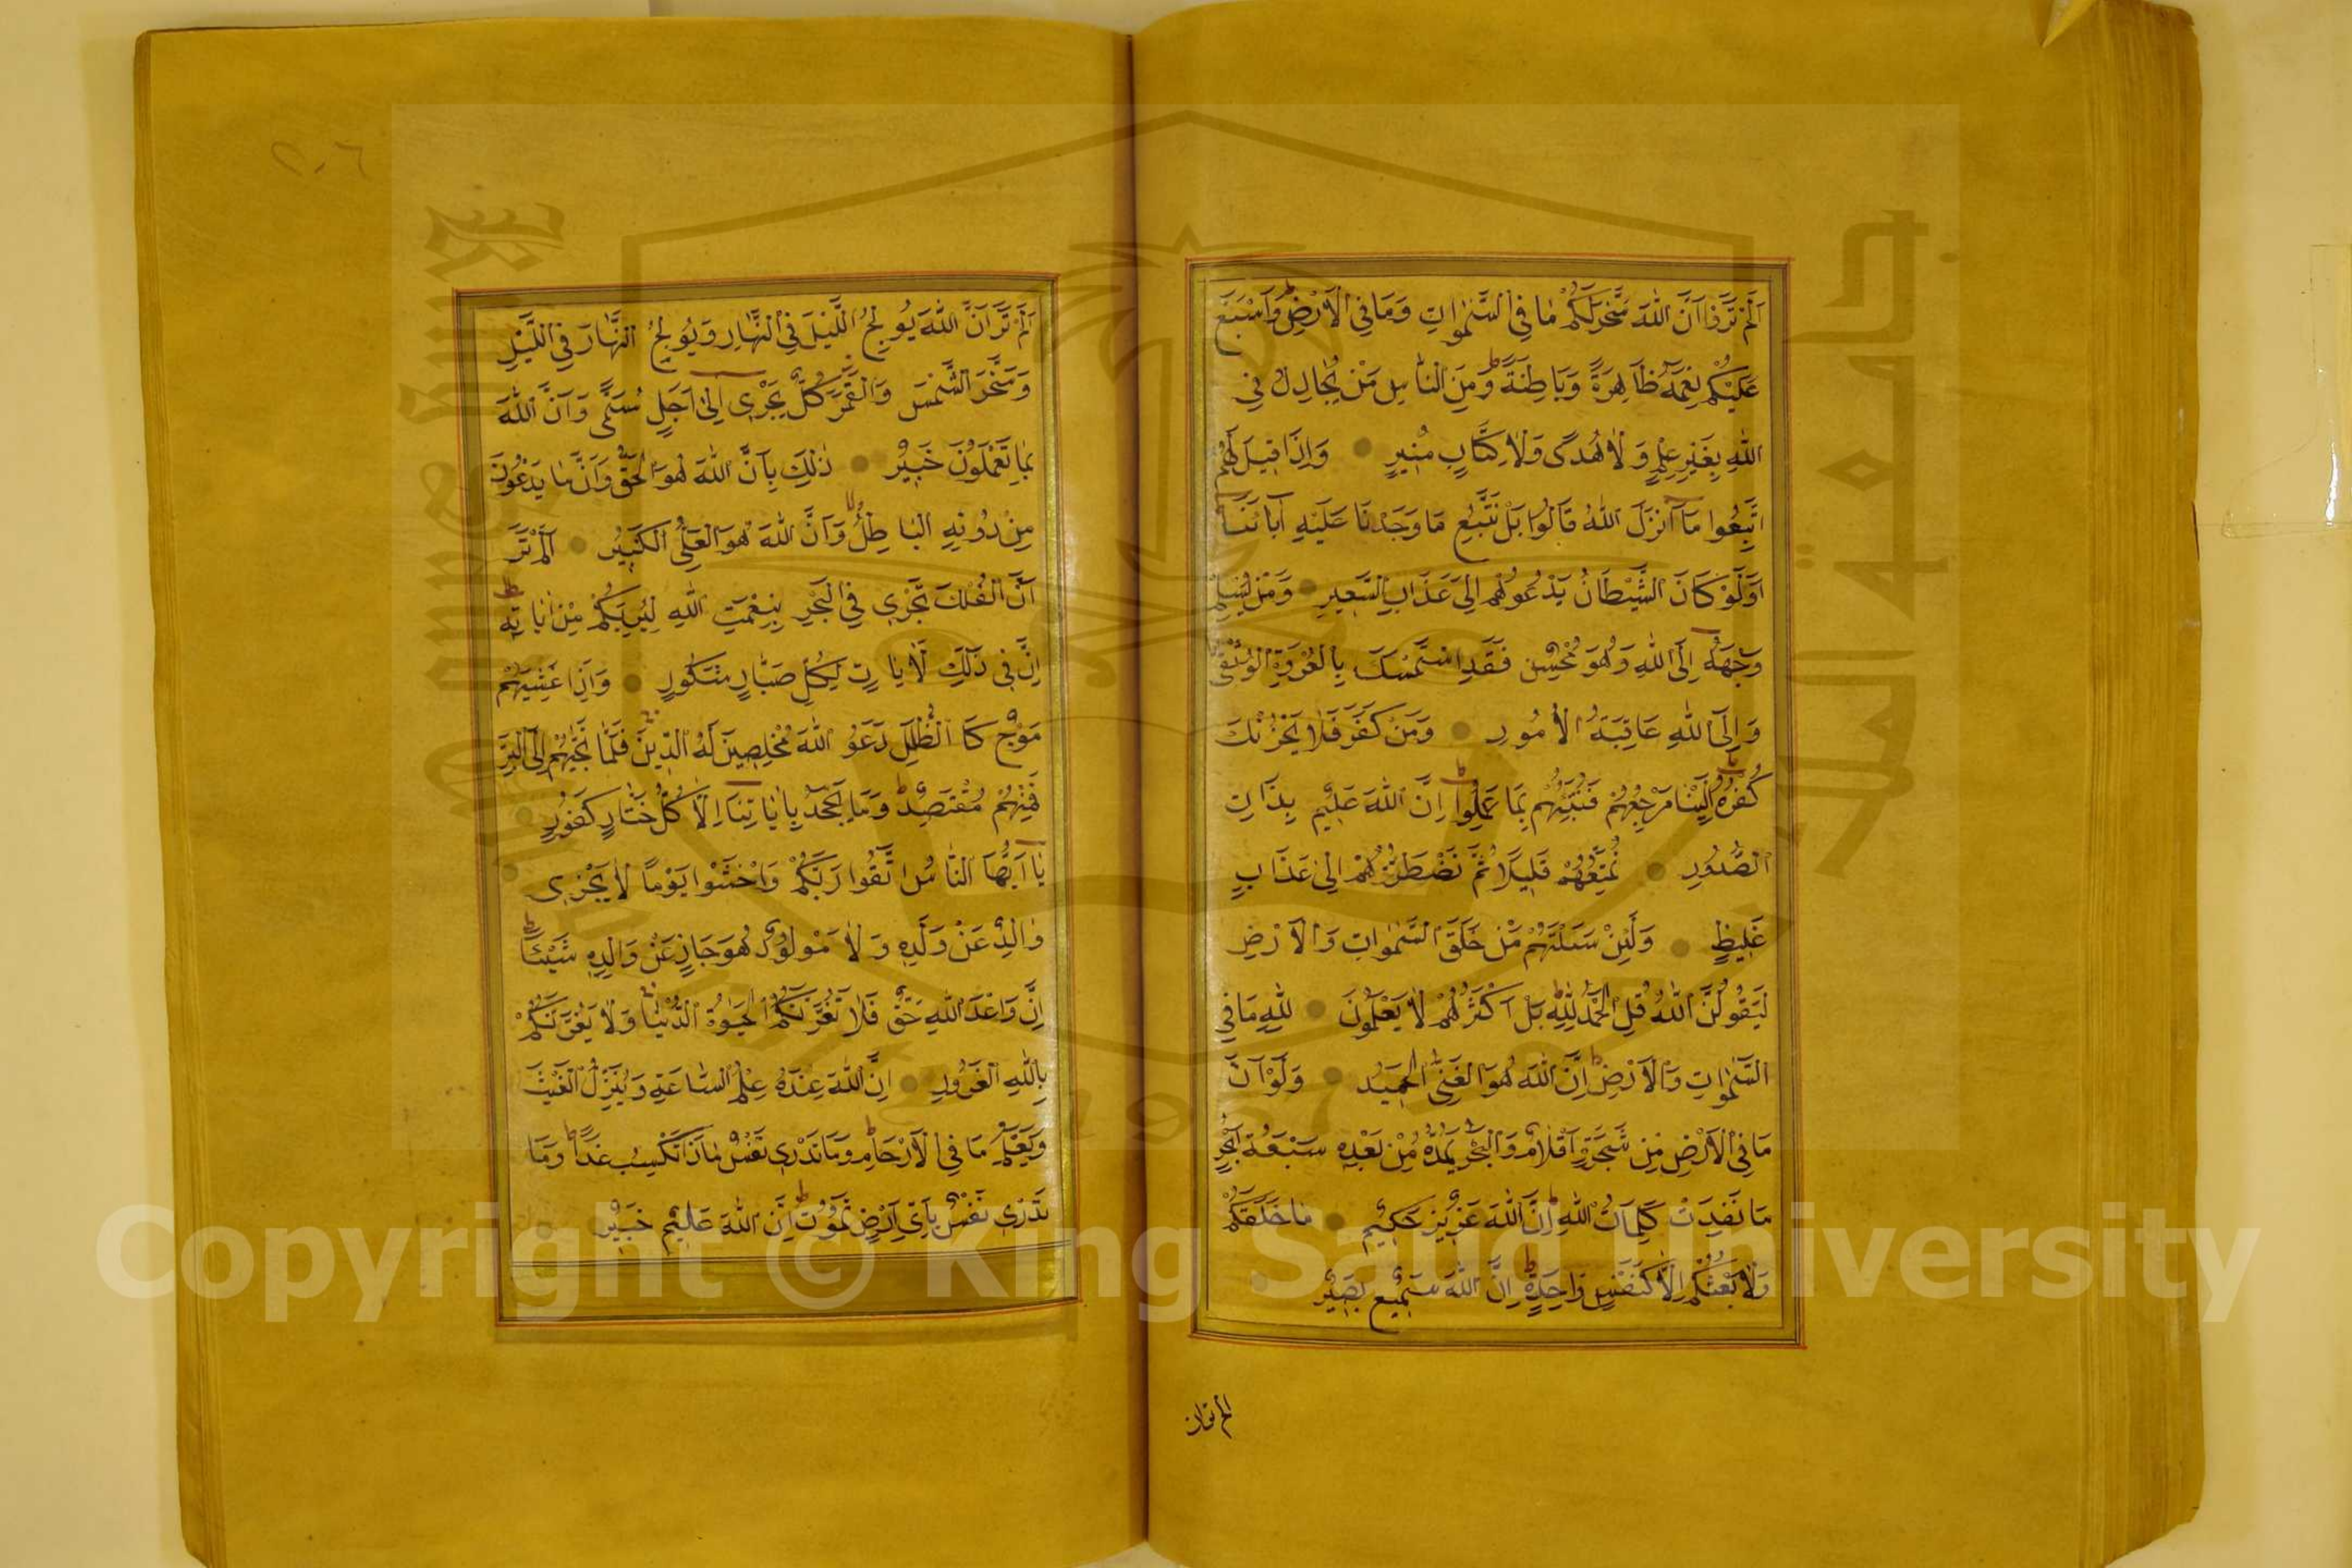 اَلَمْ تَرَوْا اَنَّ اللّٰهَ سَخَّرَ لَكُمْ مَا فِي السَّمٰوَاتِ وَمَا فِي الْاَرْضِ وَاَسْبَغَ
عَلَيْكُمْ نِعَمَهُ ظَاهِرَةً وَبَاطِنَةً وَمِنَ النَّاسِ مَنْ يُجَادِلُ فِي
اللّٰهِ بِغَيْرِ عِلْمٍ وَلَا هُدًى وَلَا كِتَابٍ مُنِيرٍ وَاِذَا قِيلَ لَهُمُ
اتَّبِعُوا مَا اَنْزَلَ اللّٰهُ قَالُوا بَلْ نَتَّبِعُ مَا وَجَدْنَا عَلَيْهِ آبَائَنَا
اَوَلَوْ كَانَ الشَّيْطَانُ يَدْعُوهُمْ اِلَى عَذَابِ السَّعِيرِ وَمَنْ يُسْلِمْ
وَجْهَهُ اِلَى اللّٰهِ وَهُوَ مُحْسِنٌ فَقَدِ اسْتَمْسَكَ بِالْعُرْوَةِ الْوُثْقٰى
وَاِلَى اللّٰهِ عَاقِبَةُ الْاُمُورِ وَمَنْ كَفَرَ فَلَا يَحْزُنْكَ
كُفْرُهُ اِلَيْنَا مَرْجِعُهُمْ فَنُنَبِّئُهُمْ بِمَا عَمِلُوا اِنَّ اللّٰهَ عَلِيمٌ بِذَاتِ
الصُّدُورِ نُمَتِّعُهُمْ قَلِيلًا ثُمَّ نَضْطَرُّهُمْ اِلٰى عَذَابٍ
غَلِيظٍ وَلَئِنْ سَئَلْتَهُمْ مَنْ خَلَقَ السَّمٰوَاتِ وَالْاَرْضِ
لَيَقُولُنَّ اللّٰهُ قُلِ الْحَمْدُ لِلّٰهِ بَلْ اَكْثَرُهُمْ لَا يَعْلَمُونَ لِلّٰهِ مَا فِي
السَّمٰوَاتِ وَالْاَرْضِ اِنَّ اللّٰهَ هُوَ الْغَنِيُّ الْحَمِيدُ وَلَوْ اَنَّ
مَا فِي الْاَرْضِ مِنْ شَجَرَةٍ اَقْلَامٌ وَالْبَحْرُ يَمُدُّهُ مِنْ بَعْدِهِ سَبْعَةُ اَبْحُرٍ
مَا نَفِدَتْ كَلِمَاتُ اللّٰهِ اِنَّ اللّٰهَ عَزِيزٌ حَكِيمٌ مَا خَلْقُكُمْ
وَلَا بَعْثُكُمْ اِلَّا كَنَفْسٍ وَاحِدَةٍ اِنَّ اللّٰهَ سَمِيعٌ بَصِيرٌ
الم تر ان
٢٠٦
اَلَمْ تَرَ اَنَّ اللّٰهَ يُولِجُ اللَّيْلَ فِي النَّهَارِ وَيُولِجُ النَّهَارَ فِي اللَّيْلِ
وَسَخَّرَ الشَّمْسَ وَالْقَمَرَ كُلٌّ يَجْرِي اِلٰى اَجَلٍ مُسَمًّى وَاَنَّ اللّٰهَ
بِمَا تَعْمَلُونَ خَبِيرٌ ذٰلِكَ بِاَنَّ اللّٰهَ هُوَ الْحَقُّ وَاَنَّ مَا يَدْعُونَ
مِنْ دُونِهِ الْبَاطِلُ وَاَنَّ اللّٰهَ هُوَ الْعَلِيُّ الْكَبِيرُ اَلَمْ تَرَ
اَنَّ الْفُلْكَ تَجْرِي فِي الْبَحْرِ بِنِعْمَتِ اللّٰهِ لِيُرِيَكُمْ مِنْ اٰيَاتِهِ
اِنَّ فِي ذٰلِكَ لَاٰيَاتٍ لِكُلِّ صَبَّارٍ شَكُورٍ وَاِذَا غَشِيَهُمْ
مَوْجٌ كَالظُّلَلِ دَعَوُ اللّٰهَ مُخْلِصِينَ لَهُ الدِّينَ فَلَمَّا نَجّٰيهُمْ اِلَى الْبَرِّ
فَمِنْهُمْ مُقْتَصِدٌ وَمَا يَجْحَدُ بِاٰيَاتِنَا اِلَّا كُلُّ خَتَّارٍ كَفُورٍ
يَا اَيُّهَا النَّاسُ اتَّقُوا رَبَّكُمْ وَاخْشَوْا يَوْمًا لَا يَجْزِي
وَالِدٌ عَنْ وَلَدِهِ وَلَا مَوْلُودٌ هُوَ جَازٍ عَنْ وَالِدِهِ شَيْئًا
اِنَّ وَعْدَ اللّٰهِ حَقٌّ فَلَا تَغُرَّنَّكُمُ الْحَيٰوةُ الدُّنْيَا وَلَا يَغُرَّنَّكُمْ
بِاللّٰهِ الْغَرُورُ اِنَّ اللّٰهَ عِنْدَهُ عِلْمُ السَّاعَةِ وَيُنَزِّلُ الْغَيْثَ
وَيَعْلَمُ مَا فِي الْاَرْحَامِ وَمَا تَدْرِي نَفْسٌ مَاذَا تَكْسِبُ غَدًا وَمَا
تَدْرِي نَفْسٌ بِاَيِّ اَرْضٍ تَمُوتُ اِنَّ اللّٰهَ عَلِيمٌ خَبِيرٌ
جامعة الملك سعود
King Saud University
1957
Copyright © King Saud University